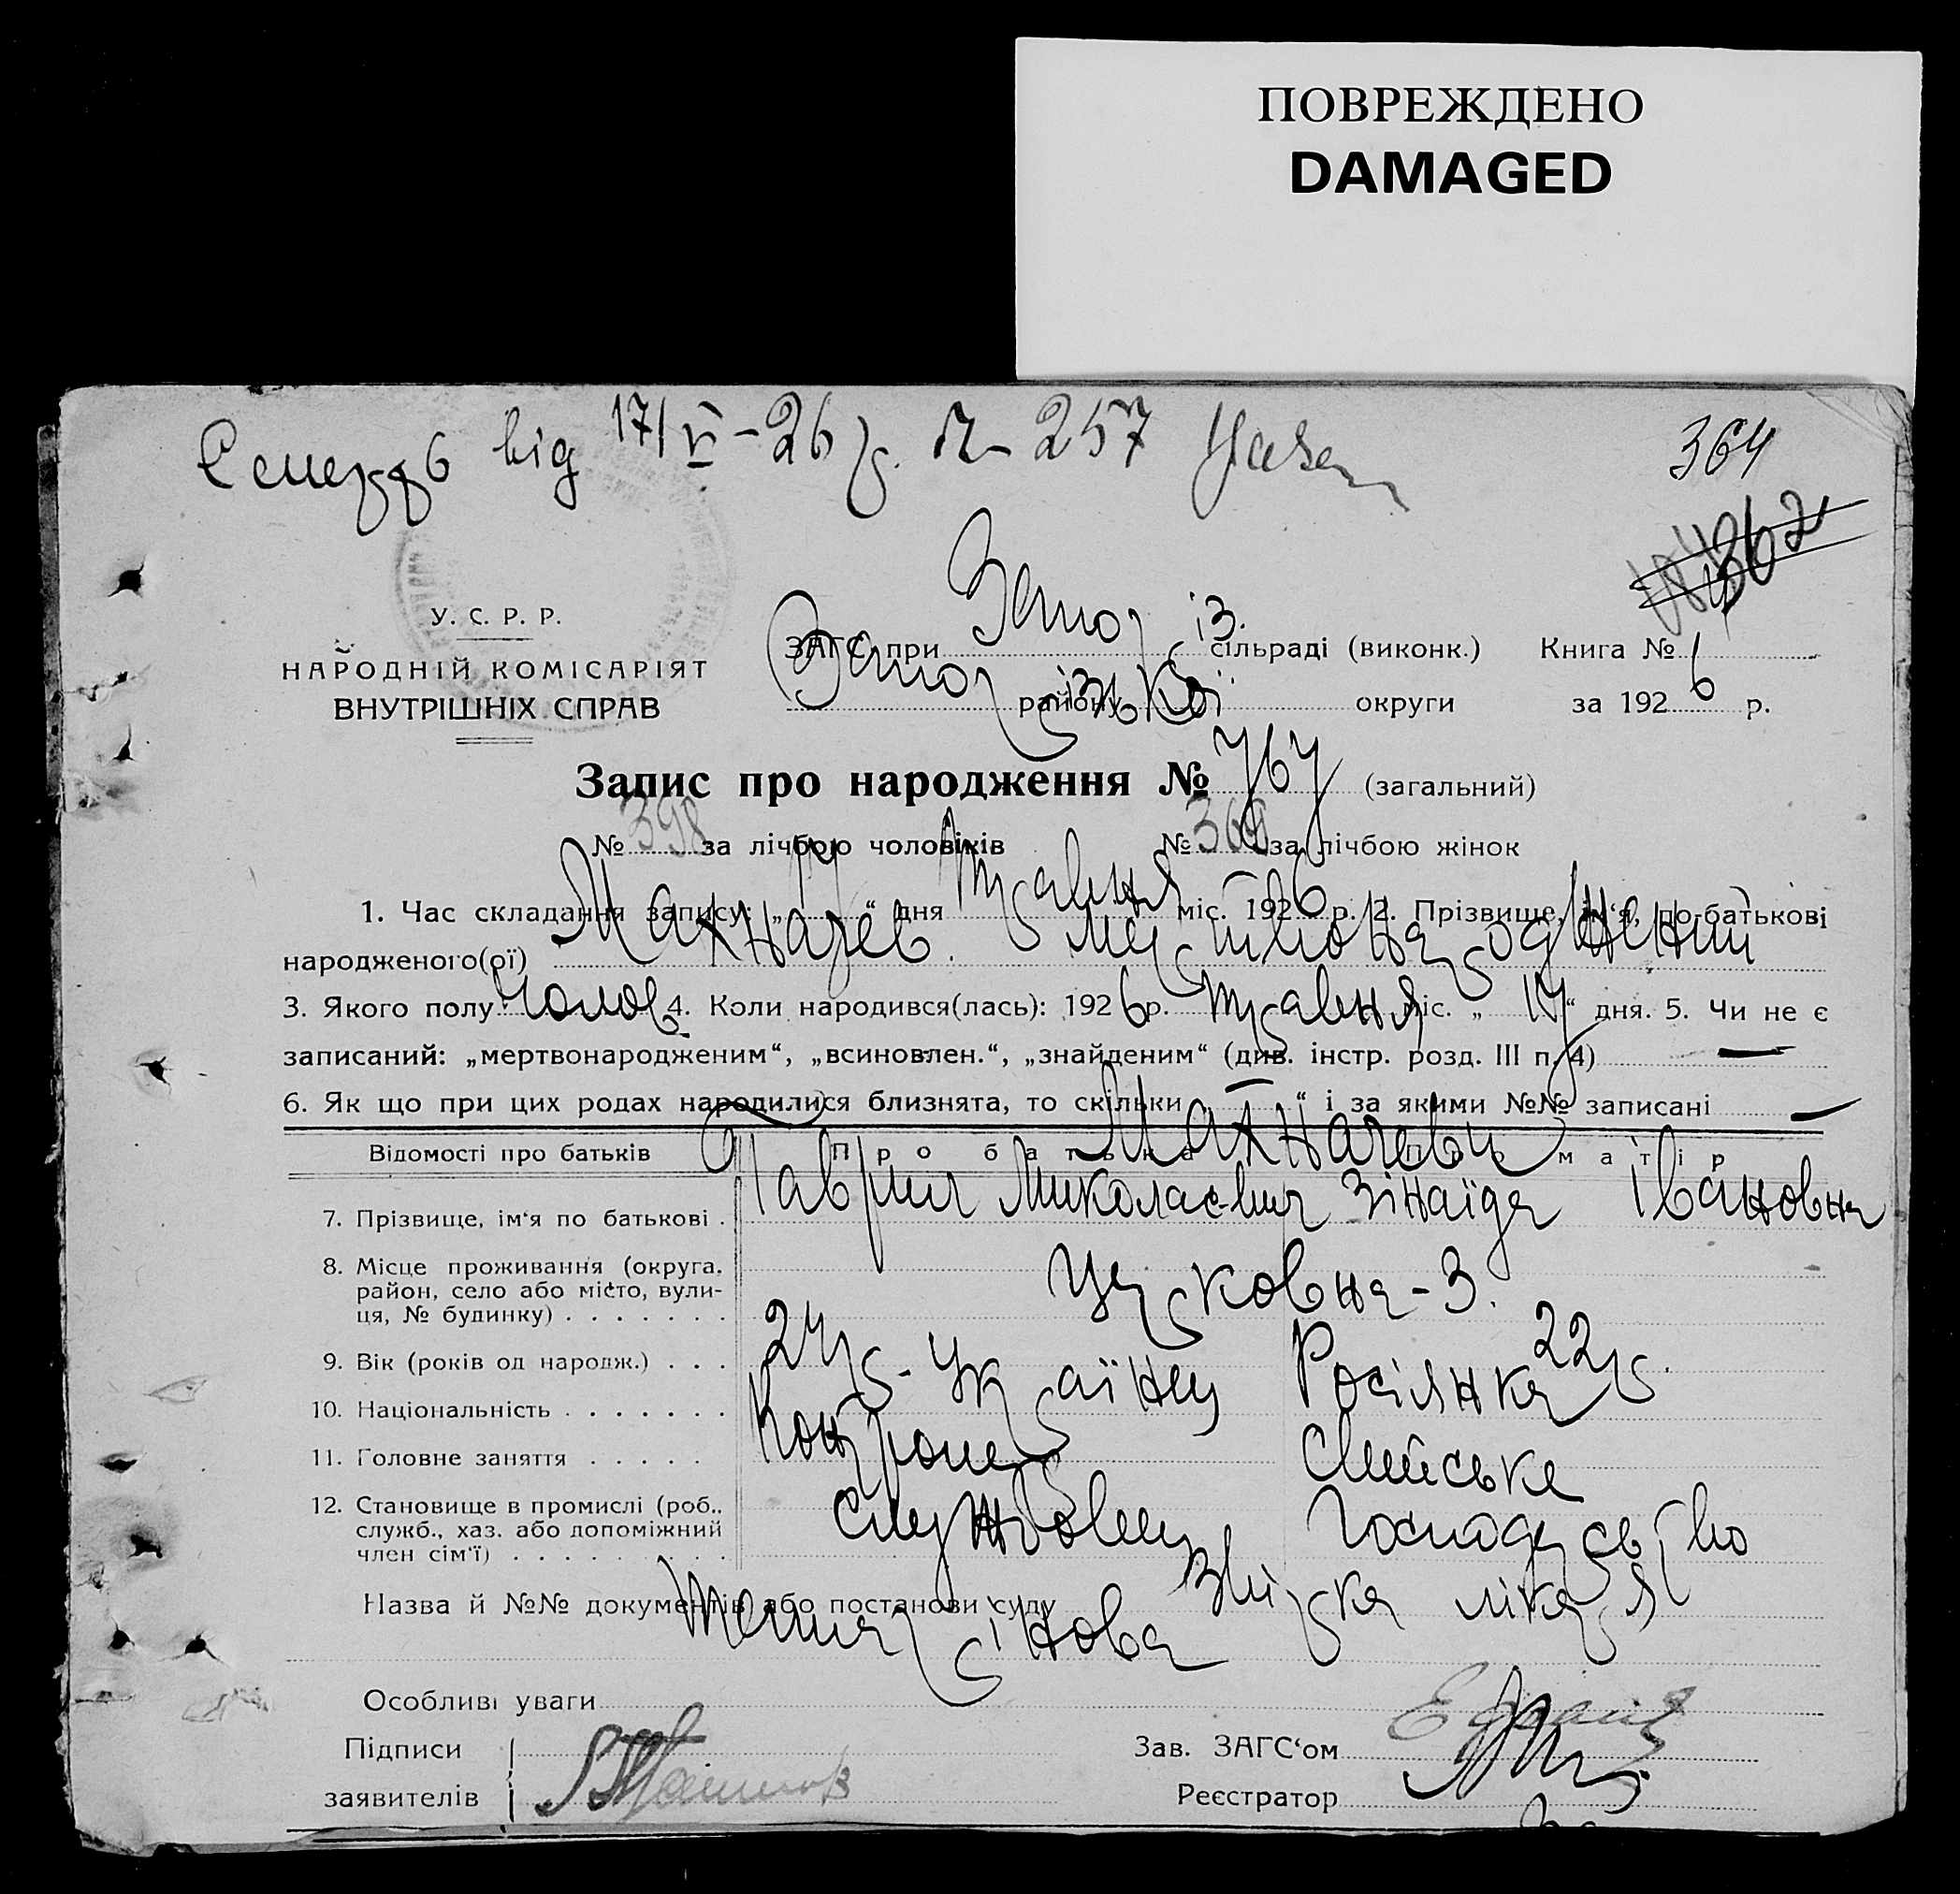 ПОВРЕЖДЕНО
DAMAGED
від 17/V-26 р. № 257
364
362
У. С. Р. Р.
НАРОДНІЙ КОМІСАРІЯТ
ВНУТРІШНІХ СПРАВ
ЗАГС при Запоріз. сільраді (виконк.) Книга № 6
Запорізької району округи за 1926 р.
Запис про народження № 767 (загальний)
№ 398 за лічбою чоловіків № 369 за лічбою жінок
1. Час складання запису: „17“ дня травня міс. 1926 р. 2. Прізвище, ім‘я, по-батькові
народженого(ої) Махначев. мертвонароджений
3. Якого полу: чолов. 4. Коли народився(лась): 1926 р. травня міс. „17“ дня. 5. Чи не є
записаний: „мертвонародженим“, „всиновлен.“, „знайденим“ (див. інстр. розд. III п. 4) —
6. Як що при цих родах народилися близнята, то скільки „—“ і за якими №№ записані —
Відомості про батьків Про батька Про матір
Махначеви
7. Прізвище, ім‘я по батькові . Гаврил Миколаєвич Зінаїда Івановна
8. Місце проживання (округа, район, село або місто, вулиця, № будинку) . . . . . . . Церковна-3.
9. Вік (років од народж.) . . . 24 р. 22 р.
10. Національність . . . . . . . Українец Росіянка
11. Головне заняття . . . . . Сімейське
12. Становище в промислі (роб., служб., хаз. або допоміжний член сім‘ї) . . . . . . . . . службовец господарство
Назва й №№ документів або постанови суду лікаря
Особливі уваги
Підписи
заявителів
Зав. ЗАГС‘ом
Реєстратор